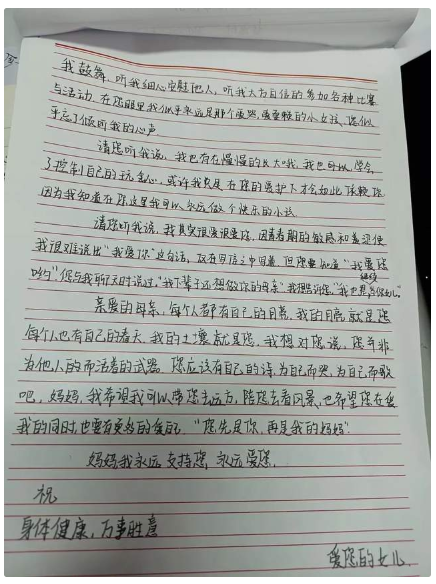 我鼓舞、听我细心安慰他人、听我大方自信的参加各种比赛
与活动。在您眼里我似乎永远是那个爱哭、爱耍赖的小女孩、您似
乎忘了倾听我的心声
请您听我说，我也有在慢慢的长大哦，我也可以学会
了控制自己的玩心，或许我只是在您的爱护下才会如此依赖您
因为我知道在您这里我可以永远做个快乐的小孩
请您听我说，我其实很爱很爱您，因青春期的敏感和羞涩使
我很难说出“我爱你”这句话，现在用信之中回盖 但您要知道“我爱您
哟”您与我聊天时说过，“我下辈子还想做你的母亲”我想告诉您，“我也想继续当你女儿。”
亲爱的母亲，每个人都有自己的月亮，我的月亮就是您
每个人也有自己的春天，我的土壤就是您，我想对您说，您并非
为他人的而活着的武器，您应该有自己的诗，为自己而哭，为自己而歌
吧，妈妈，我希望我可以带您去远方，陪您去看风景、也希望您在爱
我的同时，也要有更好的爱自己，“您先是你，再是我的妈妈”
妈妈我永远支持您，永远爱您。
祝
身体健康，万事胜意
爱您的女儿